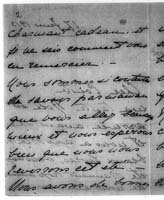 2
charmant cadeau. et
je ne sais comment vous
en remercier. —
Nous sommes si contents
de savoir
que vous allez
mieux et nous espérons
bien que nous vous
cet été.
Nous avons de bonnes